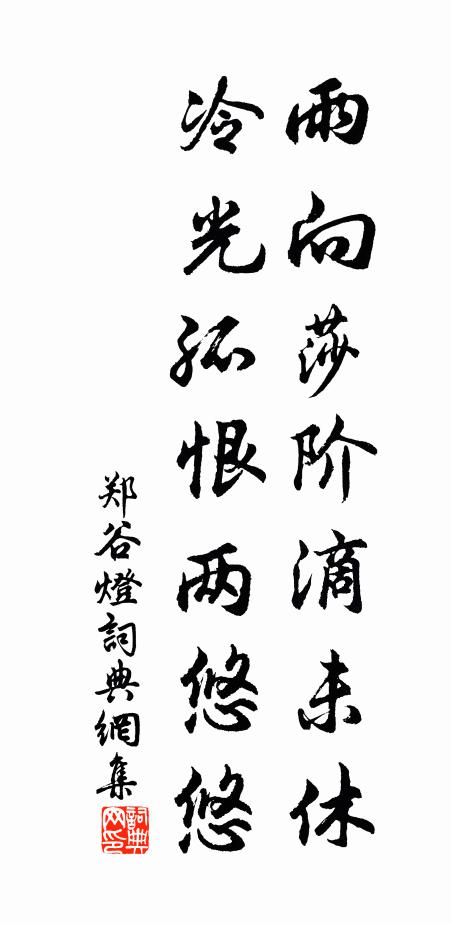 雨向莎阶滴未休
冷光孤恨两悠悠
郑谷燈詞典網集
詞典网印